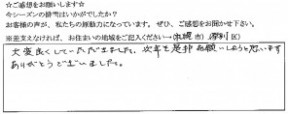 ☆ご感想をお願いします☆
今シーズンの排雪はいかがでしたか?
お客様の声が、私たちの原動力になっています。ぜひ、ご感想をお聞かせ下さい。
※差支えなければ、お住まいの地域をご記入ください→(札幌市)(厚別区)
大変良くしていただきました。次年も是非お願いしようと思います
ありがとうございました。